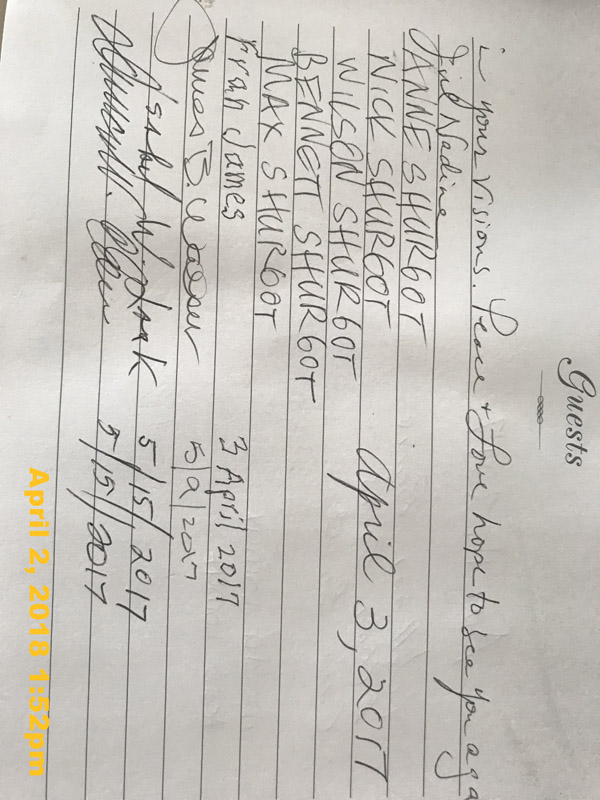 Guests
in your visions. Peace + Love hope to see you aga
Nadine
JANNE SHURGOT
NICK SHURGOT April 3, 2017
WILSON SHURGOT
BENNETT SHURGOT
MAX SHURGOT
Fran James 3 April 2017
James B. 5/9/2017
5/15/2017
5/15/2017
April 2, 2018 1:52pm